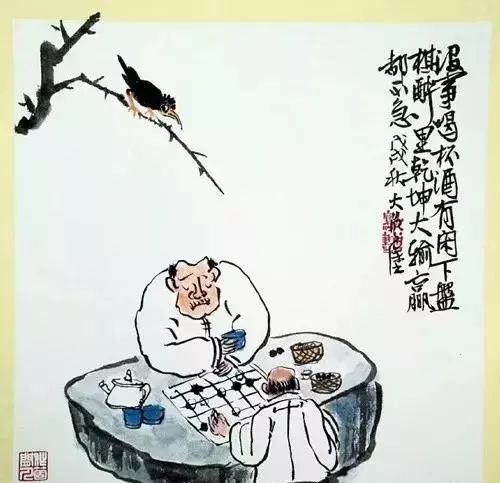 没事喝杯酒有闲下盘
棋醉里乾坤大输赢
都不急戊戌秋大